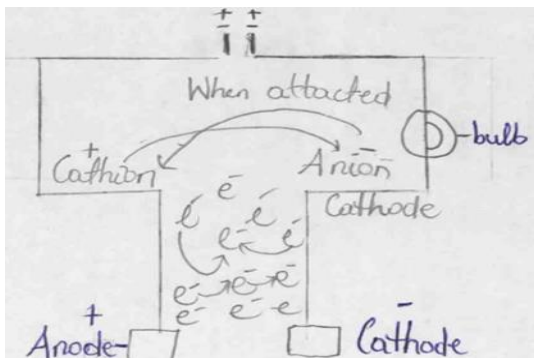 + +
- -
When attacted
+ -
Cathion Anion
Cathode
-bulb
e⁻
e⁻ e⁻
e⁻ e⁻
e⁻ e⁻ e⁻
e⁻ e⁻ e
+ -
Anode- Cathode